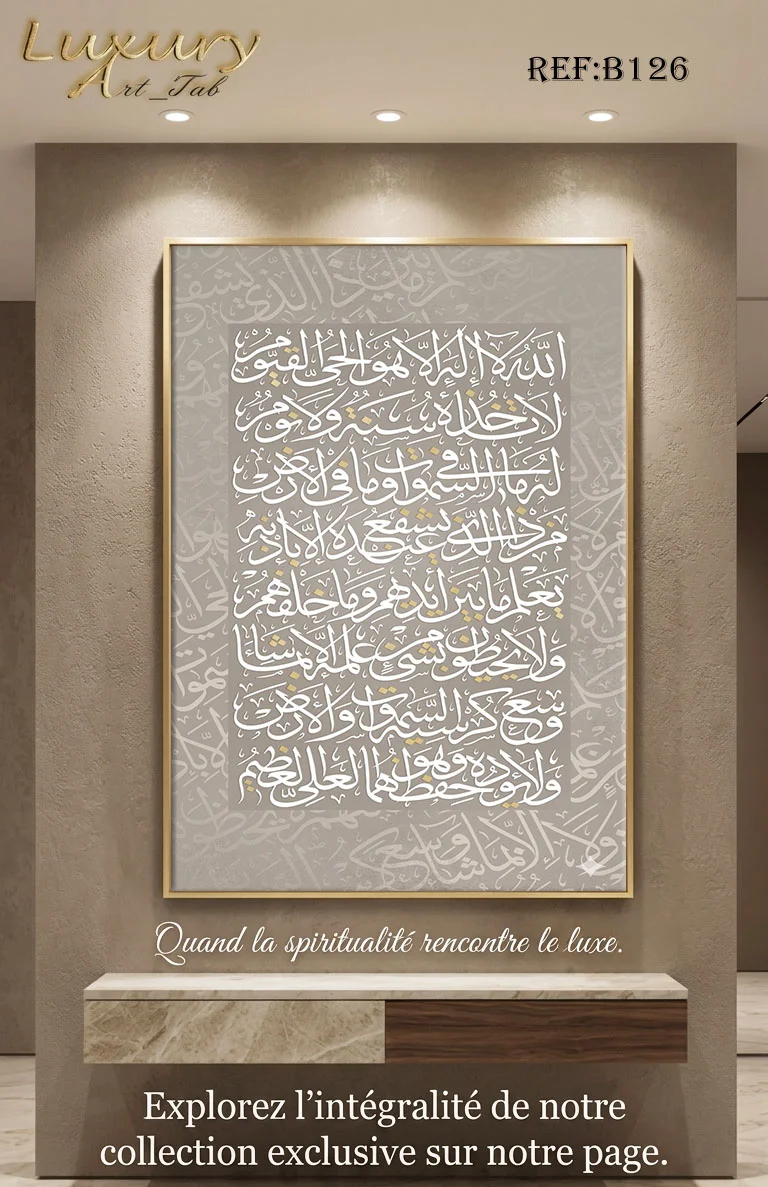 Luxury
Art_Tab
REF:B126
الله لا إله إلا هو الحي القيوم
لا تأخذه سنة ولا نوم
له ما في السموات وما في الأرض
من ذا الذي يشفع عنده إلا بإذنه
يعلم ما بين أيديهم وما خلفهم
ولا يحيطون بشيء من علمه إلا بما شاء
وسع كرسيه السموات والأرض
ولا يؤوده حفظهما وهو العلي العظيم
Quand la spiritualité rencontre le luxe.
Explorez l’intégralité de notre
collection exclusive sur notre page.